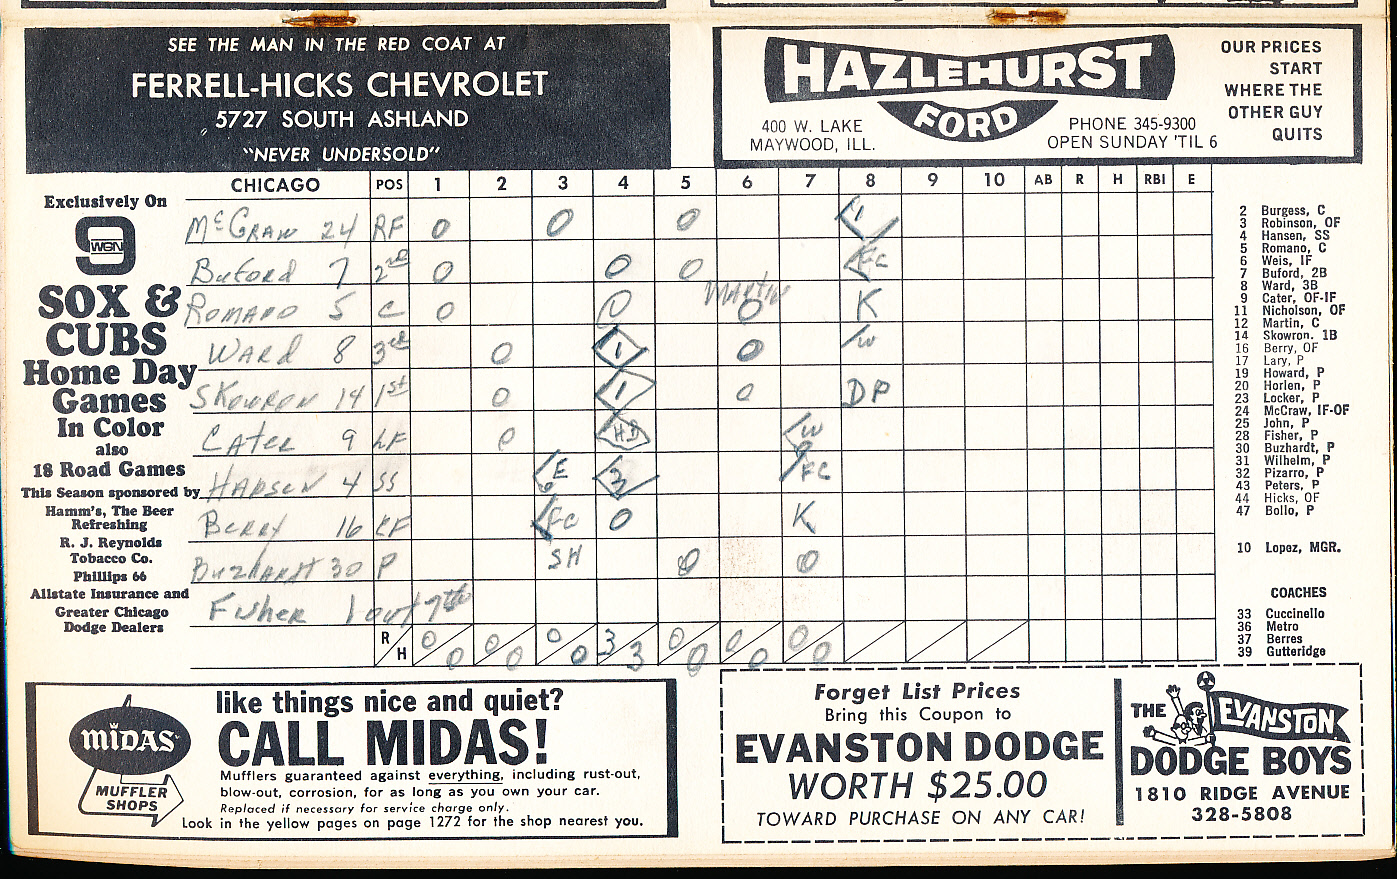 SEE THE MAN IN THE RED COAT AT
FERRELL-HICKS CHEVROLET
5727 SOUTH ASHLAND
"NEVER UNDERSOLD"
HAZLEHURST
FORD
400 W. LAKE
MAYWOOD, ILL.
PHONE 345-9300
OPEN SUNDAY 'TIL 6
OUR PRICES
START
WHERE THE
OTHER GUY
QUITS
Exclusively On
9
WGN
SOX &
CUBS
Home Day
Games
In Color
also
18 Road Games
This Season sponsored by
Hamm's, The Beer
Refreshing
R. J. Reynolds
Tobacco Co.
Phillips 66
Allstate Insurance and
Greater Chicago
Dodge Dealers
CHICAGO POS 1 2 3 4 5 6 7 8 9 10 AB R H RBI E
McCraw 24 RF 0 0 0 1
Buford 7 2nd 0 0 0 FC
Martin
Romano 5 C 0 0 0 K
Ward 8 3rd 0 1 0 W
Skowron 14 1st 0 1 0 DP
Cater 9 LF 0 HB W
Hansen 4 SS E 6 3 FC
Berry 16 CF FC 0 K
Buzhardt 30 P SH 0 0
Fisher 1 out 7th
R/H 0/0 0/0 0/0 3/3 0/0 0/0 0/0
2 Burgess, C
3 Robinson, OF
4 Hansen, SS
5 Romano, C
6 Weis, IF
7 Buford, 2B
8 Ward, 3B
9 Cater, OF-IF
11 Nicholson, OF
12 Martin, C
14 Skowron. 1B
16 Berry, OF
17 Lary, P
19 Howard, P
20 Horlen, P
23 Locker, P
24 McCraw, IF-OF
25 John, P
28 Fisher, P
30 Buzhardt, P
31 Wilhelm, P
32 Pizarro, P
43 Peters, P
44 Hicks, OF
47 Bollo, P
10 Lopez, MGR.
COACHES
33 Cuccinello
36 Metro
37 Berres
39 Gutteridge
MIDAS
MUFFLER
SHOPS
like things nice and quiet?
CALL MIDAS!
Mufflers guaranteed against everything, including rust-out,
blow-out, corrosion, for as long as you own your car.
Replaced if necessary for service charge only.
Look in the yellow pages on page 1272 for the shop nearest you.
Forget List Prices
Bring this Coupon to
EVANSTON DODGE
WORTH $25.00
TOWARD PURCHASE ON ANY CAR!
THE EVANSTON
DODGE BOYS
1810 RIDGE AVENUE
328-5808